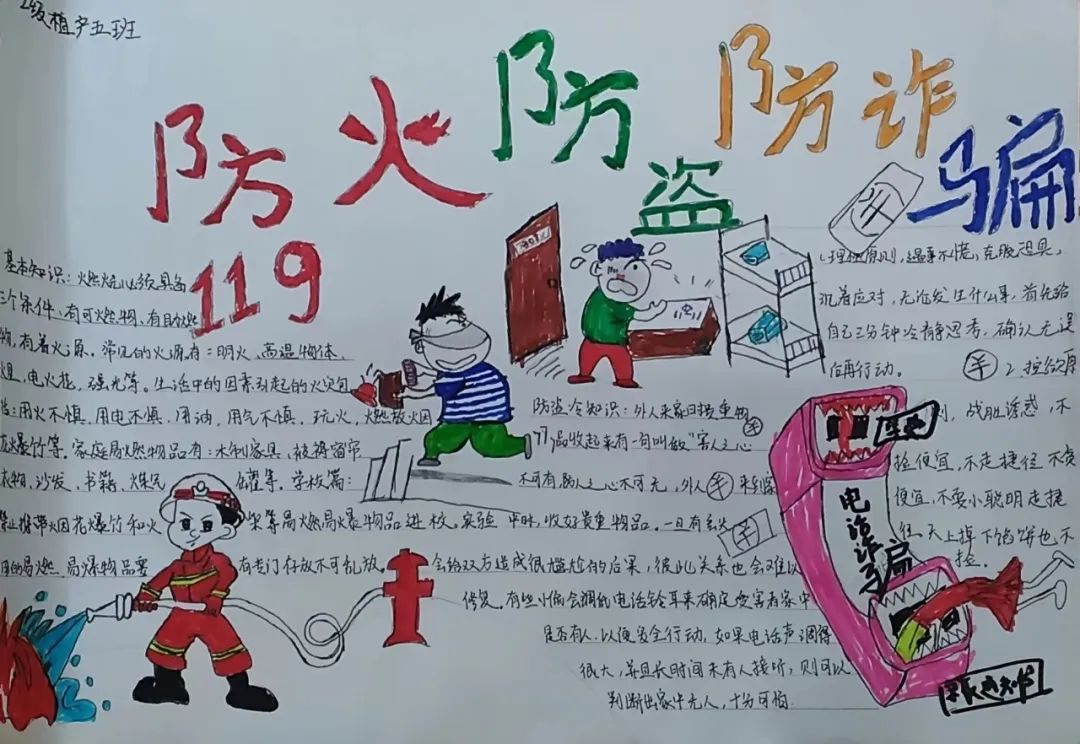 级植产五班
防火 防盗 防诈骗
119
基本知识：火燃烧必须具备
三个条件，有可燃物，有助燃
物，有着火源。常见的火源有：明火、高温物体、
电火花，强光等。生活中的因素引起的火灾包
括：用火不慎，用电不慎，用油，用气不慎，玩火，燃放烟
花爆竹等。家庭易燃物品有：木制家具、被褥窗帘
衣物，沙发、书籍、煤气
罐等。学校篇：
禁止携带烟花爆竹和火
柴等易燃易爆物品进校。实验
用的易燃、易爆物品要
有专门存放不可乱放。
防盗冷知识：外人来家回接贵重物
品收起来有一句叫做“害人之心
不可有，防人之心不可无，外人来到家
中时，收好贵重物品。一旦有丢失
会给双方造成很尴尬的后果，彼此关系也会难以
修复。有些小偷会调低电话铃耳来确定受害者家中
是否有人，以便安全行动，如果电话声调得
很大，并且长时间未有人接听，则可以
判断出家中无人，十分可怕
1.理性原则，遇事不慌，克服恐惧，
沉着应对，无论发生什么事，首先给
自己三分钟冷静思考，确认无误
后再行动。
2.控欲原
则，战胜诱惑，不
捡便宜，不走捷径 不贪
便宜，不要小聪明走捷
径，天上掉下馅饼也不
捡。
羊
羊
羊
羊
羊
电话诈骗